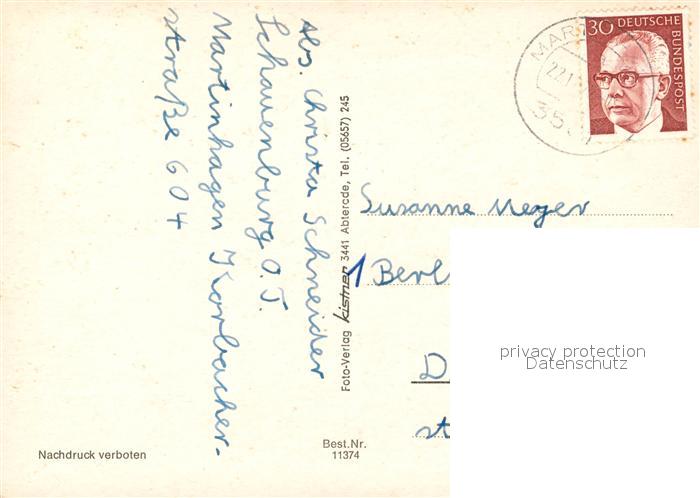 Abs. Christa Schneider
Schauenburg O.T.
Martinhagen Korbacher-
straße 604
Foto-Verlag kistner 3441 Abterode, Tel. (05657) 245
30 DEUTSCHE
BUNDESPOST
MART
22.1
35
Susanne Meyer
1 Berl
D
st
privacy protection
Datenschutz
Nachdruck verboten
Best.Nr.
11374